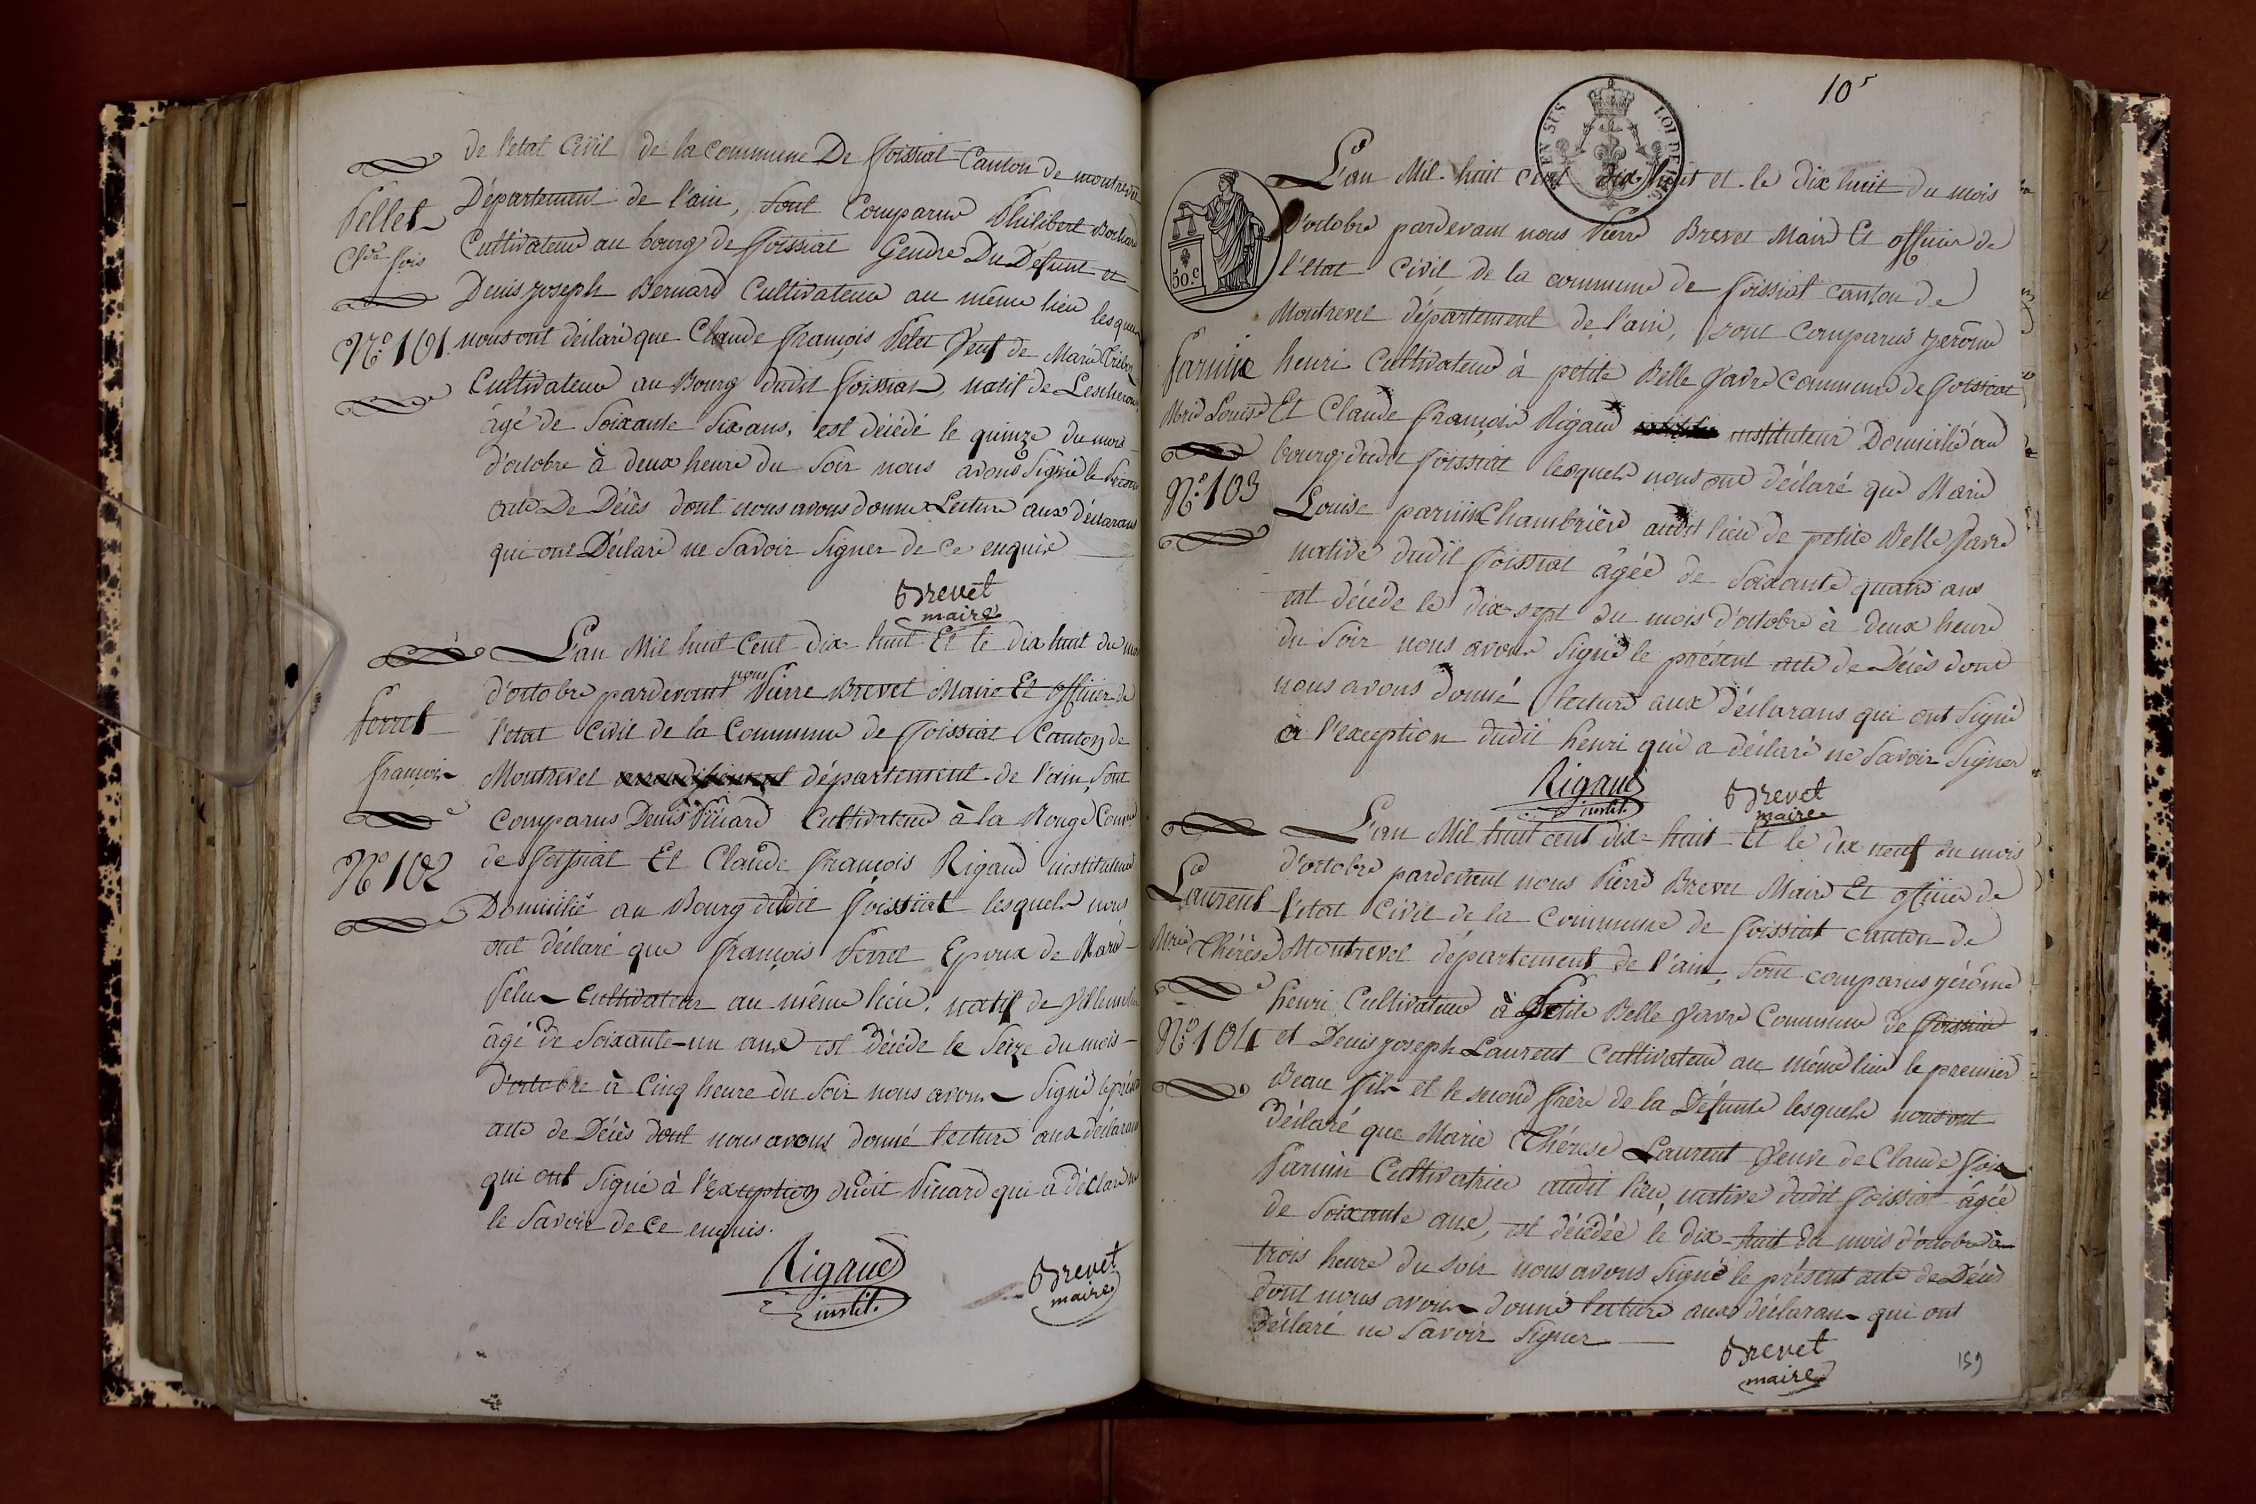 de l'etat Civil de la Commune De foissiat Canton de montrevel
Département de l'ain, sont Comparus Philibert Bochard
Pellet
Cultivateur au bourg de foissiat Gendre Du Défunt et
Cde fois
Denis joseph Bernard Cultivateur au même lieu lesquels
N.º 101.
nous ont déclaré que Claude françois Pelet Veuf de Marie
Cultivateur au Bourg dudit foissiat, natif de Lescheroux
âgé de Soixante Six ans, est décédé le quinze du mois
d'octobre à deux heure du Soir nous avons Signé le
acte De Décès dont nous avons donné Lecture aux déclarans
qui ont Déclaré ne Savoir Signer de Ce enquis
Brevet
maire
L'an Mil huit Cent dix-huit Et le dix huit du mois
d'octobre pardevant nous Pierre Brevet Maire Et officier de
ferret
l'etat Civil de la Commune de foissiat Canton de
françois
Montrevel département de l'ain, Sont
Comparus Denis Vüiard Cultivateur à la Rouge Comm
de foissiat Et Claude françois Rigaud instituteur
N.º 102
Domicilié au Bourg dudit foissiat lesquels nous
ont déclaré que françois ferret Epoux de Marie
Pelus Cultivateur au même lieu, natif de
âgé de Soixante-un ans est décédé le Seize du mois
d'octobre à Cinq heure du Soir nous avons Signé le présent
acte de Décès dont nous avons donné lecture aux déclarans
qui ont Signé à l'exception dudit Vüiard qui a déclaré ne
le Savoir de Ce enquis.
Rigaud
instit.
Brevet
maire
10
LOI DE
50.c
L'an Mil huit cent dix-huit et le dix huit du mois
d'octobre pardevant nous Pierre Brevet Maire Et officier de
l'etat Civil de la commune de foissiat canton de
Montrevel département de l'ain, sont comparus jerôme
farnin
henri Cultivateur à petite Belle Vavre Commune de foissiat
Mrie Louise
Et Claude françois Rigaud instituteur Domicilié au
bourg dudit foissiat lesquels nous ont déclaré que Marie
N.º 103
Louise parnin Chambrière audit lieu de petite Belle Vavre
native dudit foissiat âgée de Soixante quatre ans
est décédé le dix-sept du mois d'octobre à deux heure
du Soir nous avons Signé le présent acte de Décès dont
nous avons donné lecture aux déclarans qui ont Signé
à l'exception dudit henri qui a déclaré ne Savoir Signer
Rigaud
instit.
Brevet
maire
L'an Mil huit cent dix-huit Et le dix neuf du mois
d'octobre pardevant nous Pierre Brevet Maire Et officier de
Laurent
l'etat Civil de la Commune de foissiat canton de
Mrie Thérèse
Montrevel département de l'ain, sont comparus jérôme
henri Cultivateur à Petite Belle Vavre Commune de foissiat
N.º 104
et Denis joseph Laurent Cultivateur au même lieu le premier
Beau fils et le second frère de la Défunte lesquels nous ont
déclaré que Marie Thérèse Laurent Veuve de Claude fois
Parnin Cultivatrice audit lieu, native dudit foissiat âgée
de Soixante ans, est décédée le dix-huit du mois d'octobre à
trois heure du soir nous avons Signé le présent acte de Décès
dont nous avons donné lecture aux déclarans qui ont
déclaré ne Savoir Signer
Brevet
maire
159